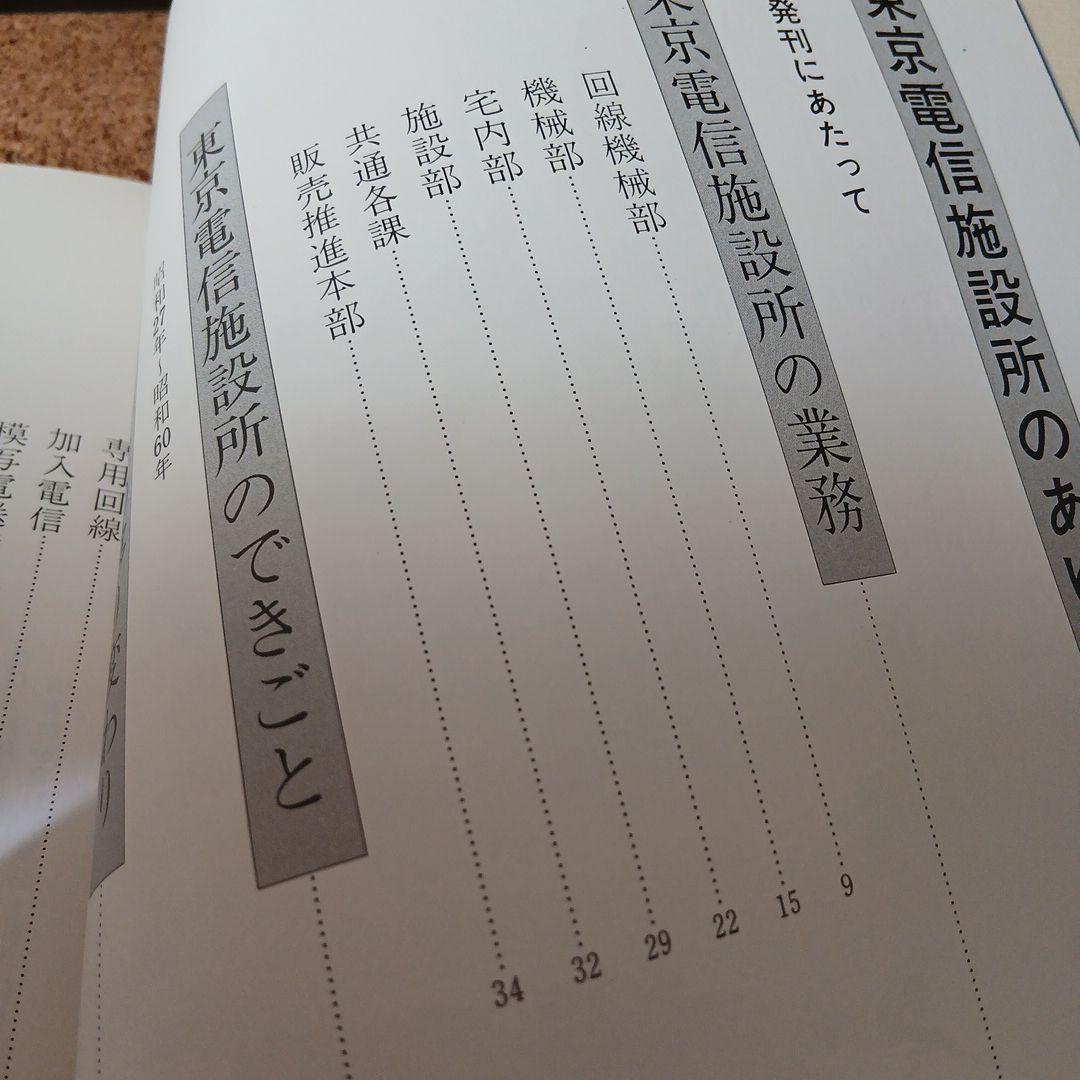 東京電信施設所のあ
発刊にあたって
東京電信施設所の業務
回線機械部 9
機械部 15
宅内部 22
施設部 29
共通各課 32
販売推進本部 34
東京電信施設所のできごと
昭和27年~昭和60年
専用回線
加入電信
模写電送